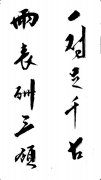 一對足千古
兩表酬三顧